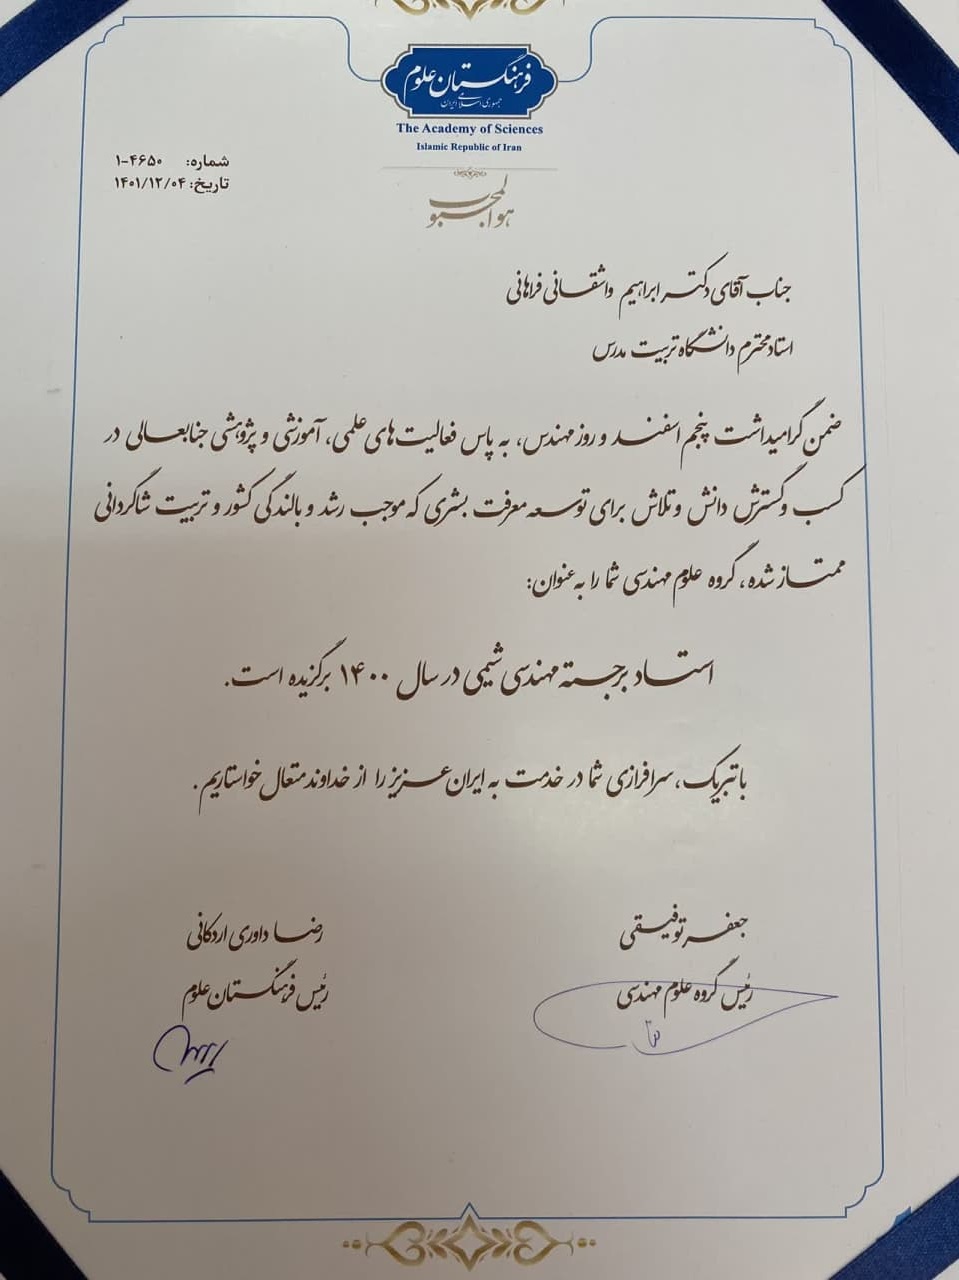 فرهنگستان علوم
جمهوری اسلامی ایران
The Academy of Sciences
Islamic Republic of Iran
شماره: ۱-۴۶۵۰
تاریخ: ۱۴۰۱/۱۲/۰۴
هوالمحبوب
جناب آقای دکتر ابراهیم واشقانی فراهانی
استاد محترم دانشگاه تربیت مدرس
ضمن گرامیداشت پنجم اسفند و روز مهندس، به پاس فعالیت‌های علمی، آموزشی و پژوهشی جنابعالی در
کسب و گسترش دانش و تلاش برای توسعه معرفت بشری که موجب رشد و بالندگی کشور و تربیت شاگردانی
ممتاز شده، گروه علوم مهندسی شما را به عنوان:
استاد برجسته مهندسی شیمی در سال ۱۴۰۰ برگزیده است.
با تبریک، سرافرازی شما در خدمت به ایران عزیز را از خداوند متعال خواستاریم.
جعفر توفیقی
رئیس گروه علوم مهندسی
رضا داوری اردکانی
رئیس فرهنگستان علوم